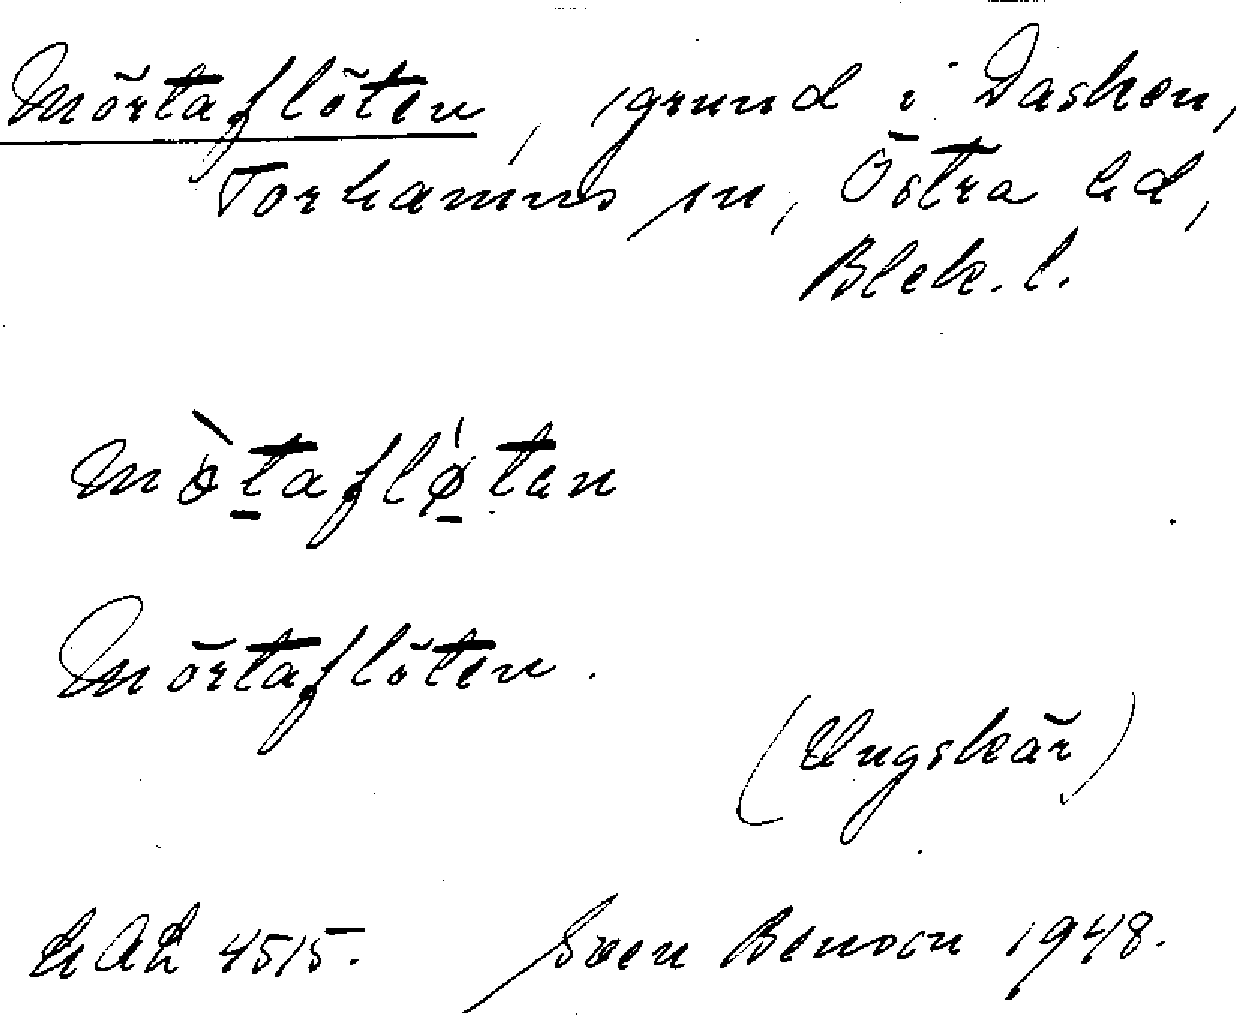 Mörtaflöten, grund i Dasken,
Torhamns sn, Östra hd,
Blek. l.
mò̱taflǿ̱tan
Mörtaflöten.
(Ungskär)
LAL 4515. Sven Benson 1948.